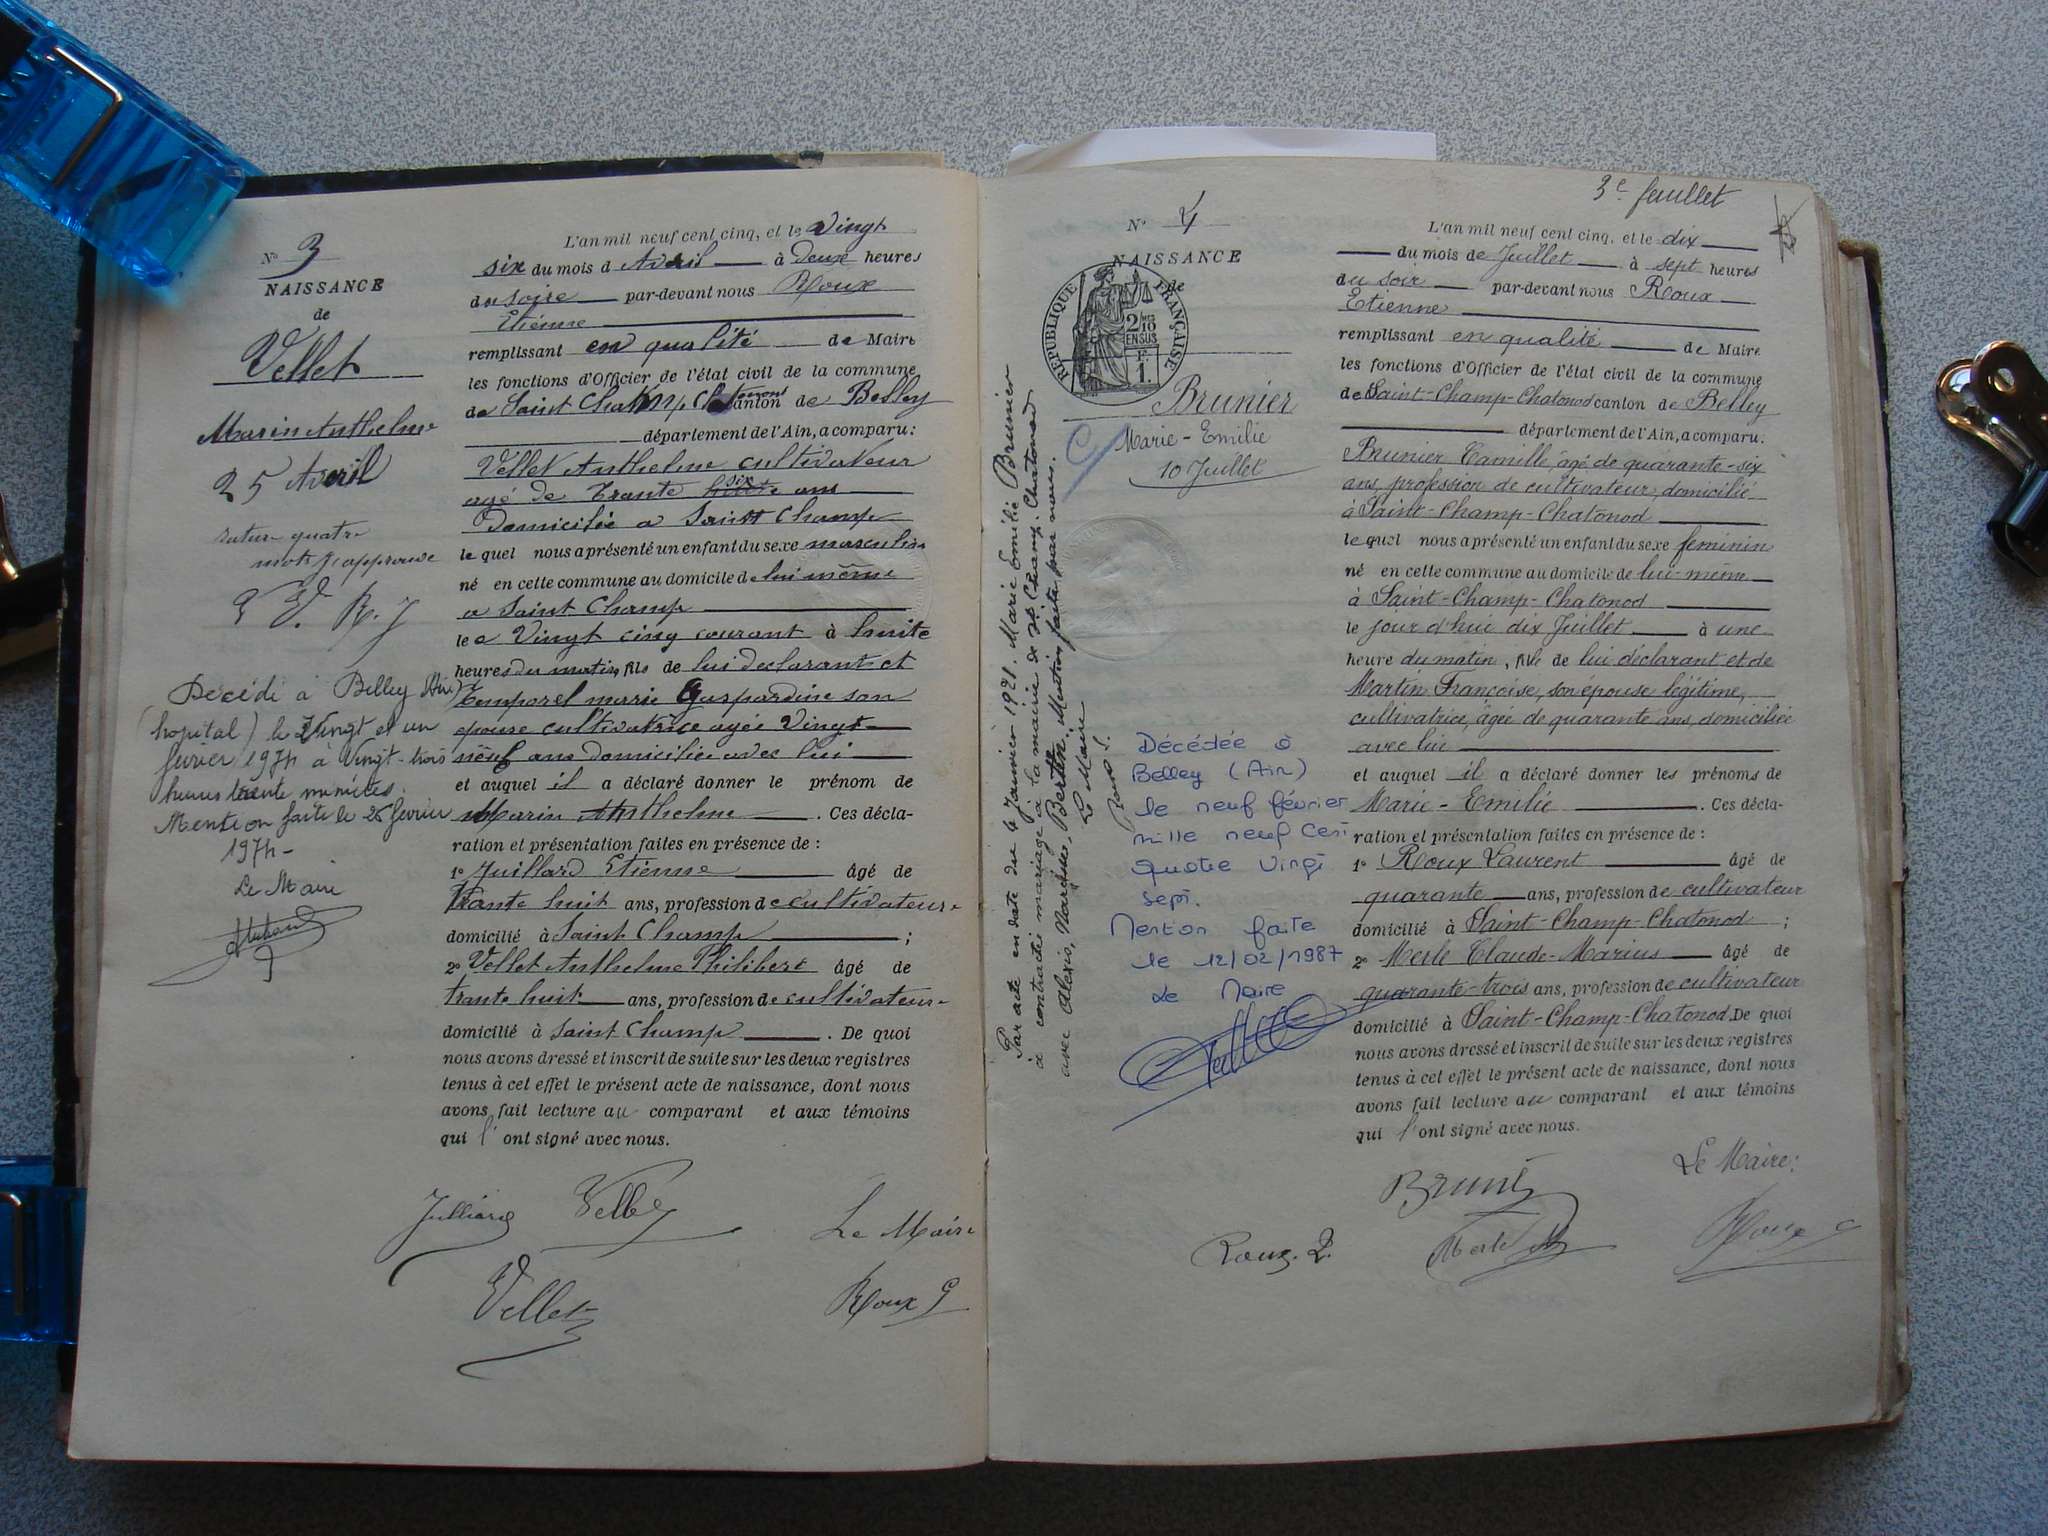 N° 3
NAISSANCE
de
Vellet
Marin Anthelme
25 Avril
rature quatre
mots j'approuve
V. R. J
Décédé à Belley (Ain)
(hopital) le Vingt et un
février 1974 à Vingt-trois
heures trente minutes.
Mention faite le 26 février
1974 -
Le Maire
L'an mil neuf cent cinq, et le Vingt
six du mois d Avril à Deux heures
du soire par-devant nous Roux
Etienne
remplissant en qualité de Maire
les fonctions d'Officier de l'état civil de la commune
de Saint Champ Chatonod canton de Belley
département de l'Ain, a comparu:
Vellet Anthelme cultivateur
agé de Trante six ans
Domicilié a Saint Champ
le quel nous a présenté un enfant du sexe masculin
né en cette commune au domicile de lui même
a Saint Champ
le Vingt cinq courant à huite
heures du matin, fils de lui declarant et
Temporel marie Gaspardine son
epouse cultivatrice agée Vingt
neuf ans domiciliée avec lui
et auquel il a déclaré donner le prénom de
Marin Anthelme . Ces décla-
ration et présentation faites en présence de :
1° Juillard Etienne âgé de
Trante huit ans, profession de cultivateur
domicilié à Saint Champ ;
2° Vellet Anthelme Philibert âgé de
trante huit ans, profession de cultivateur
domicilié à Saint Champ . De quoi
nous avons dressé et inscrit de suite sur les deux registres
tenus à cet effet le présent acte de naissance, dont nous
avons fait lecture au comparant et aux témoins
qui l'ont signé avec nous.
Julliard Vellet Le Maire
Vellet Roux
3e feuillet
N° 4
NAISSANCE
de
REPUBLIQUE FRANÇAISE
2/10 EN SUS
1 F.
Brunier
Marie-Emilie
10 Juillet
Par acte en date du 4 Janvier 1921. Marie Emilie Brunier
a contracté mariage à la mairie de St Champ-Chatonod
avec Alexis, Narcisse, Bertin. Mention faite par nous.
Le Maire
Décédée à
Belley (Ain)
le neuf février
mille neuf cent
quatre vingt
sept.
Mention faite
le 12/02/1987
Le Maire
L'an mil neuf cent cinq, et le dix
du mois de Juillet à sept heures
du soir par-devant nous Roux
Etienne
remplissant en qualité de Maire
les fonctions d'Officier de l'état civil de la commune
de Saint-Champ-Chatonod canton de Belley
département de l'Ain, a comparu:
Brunier Camille, âgé de quarante-six
ans, profession de cultivateur, domicilié
à Saint-Champ-Chatonod
le quel nous a présenté un enfant du sexe féminin
né en cette commune au domicile de lui-même
à Saint-Champ-Chatonod
le jour d'hui dix Juillet à une
heure du matin, fille de lui déclarant et de
Martin Françoise, son épouse légitime,
cultivatrice, âgée de quarante ans, domiciliée
avec lui
et auquel il a déclaré donner les prénoms de
Marie-Emilie . Ces décla-
ration et présentation faites en présence de :
1° Roux Laurent âgé de
quarante ans, profession de cultivateur
domicilié à Saint-Champ-Chatonod ;
2° Merle Claude-Marius âgé de
quarante-trois ans, profession de cultivateur
domicilié à Saint-Champ-Chatonod. De quoi
nous avons dressé et inscrit de suite sur les deux registres
tenus à cet effet le présent acte de naissance, dont nous
avons fait lecture au comparant et aux témoins
qui l'ont signé avec nous.
Le Maire:
Roux. L. Merle Roux